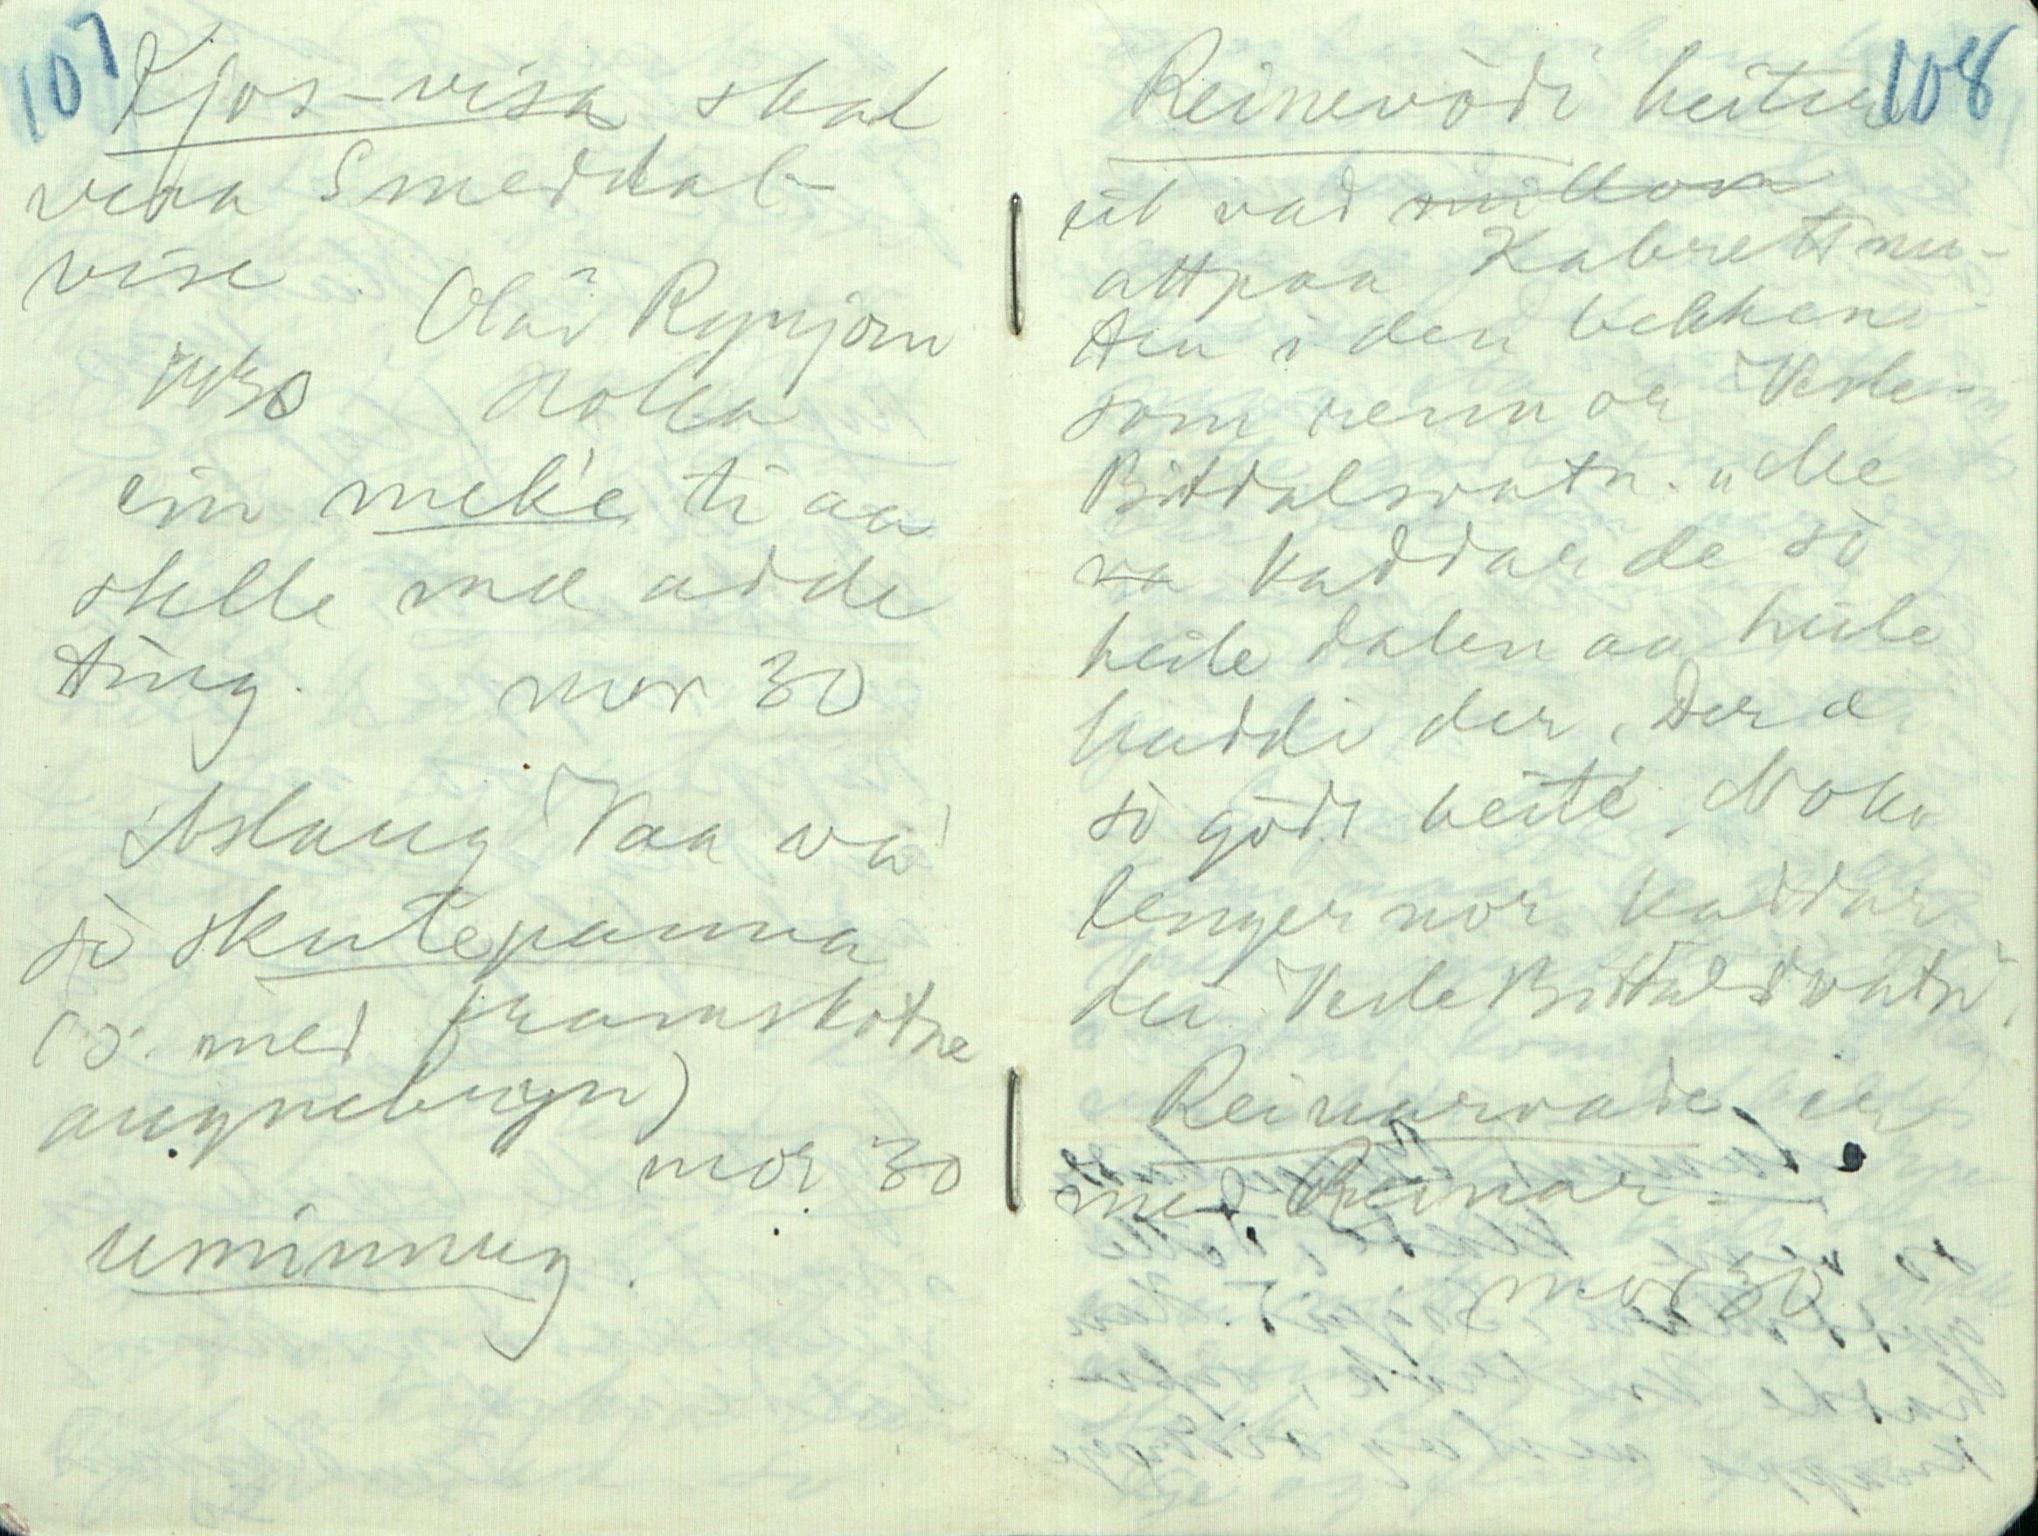 107
Kjos-visa skal
vera Smeddal-
vise.
Olav Rynjom
1930 Kolla
ein meke ti aa
stelle mæ adde
ting. mor 30
Aslaug Vaa va
so skutepanna
(ɔ: med framskotne
augnebryn)
mor 30
uminnug.
108
Reinevòdi heiter
eit vad millom
attpaa Kabrettnu-
ten i den bekken
som renn or Vesle-
Bitdalsvatn. "Me
va kaddar de so
heile dalen aa heile
haddi der. Der æ
so gödt beite. Noko
lenger nor kaddar
dei Vesle Bitdalsvatn".
Reinarvade er
med Reinar-
mor 30